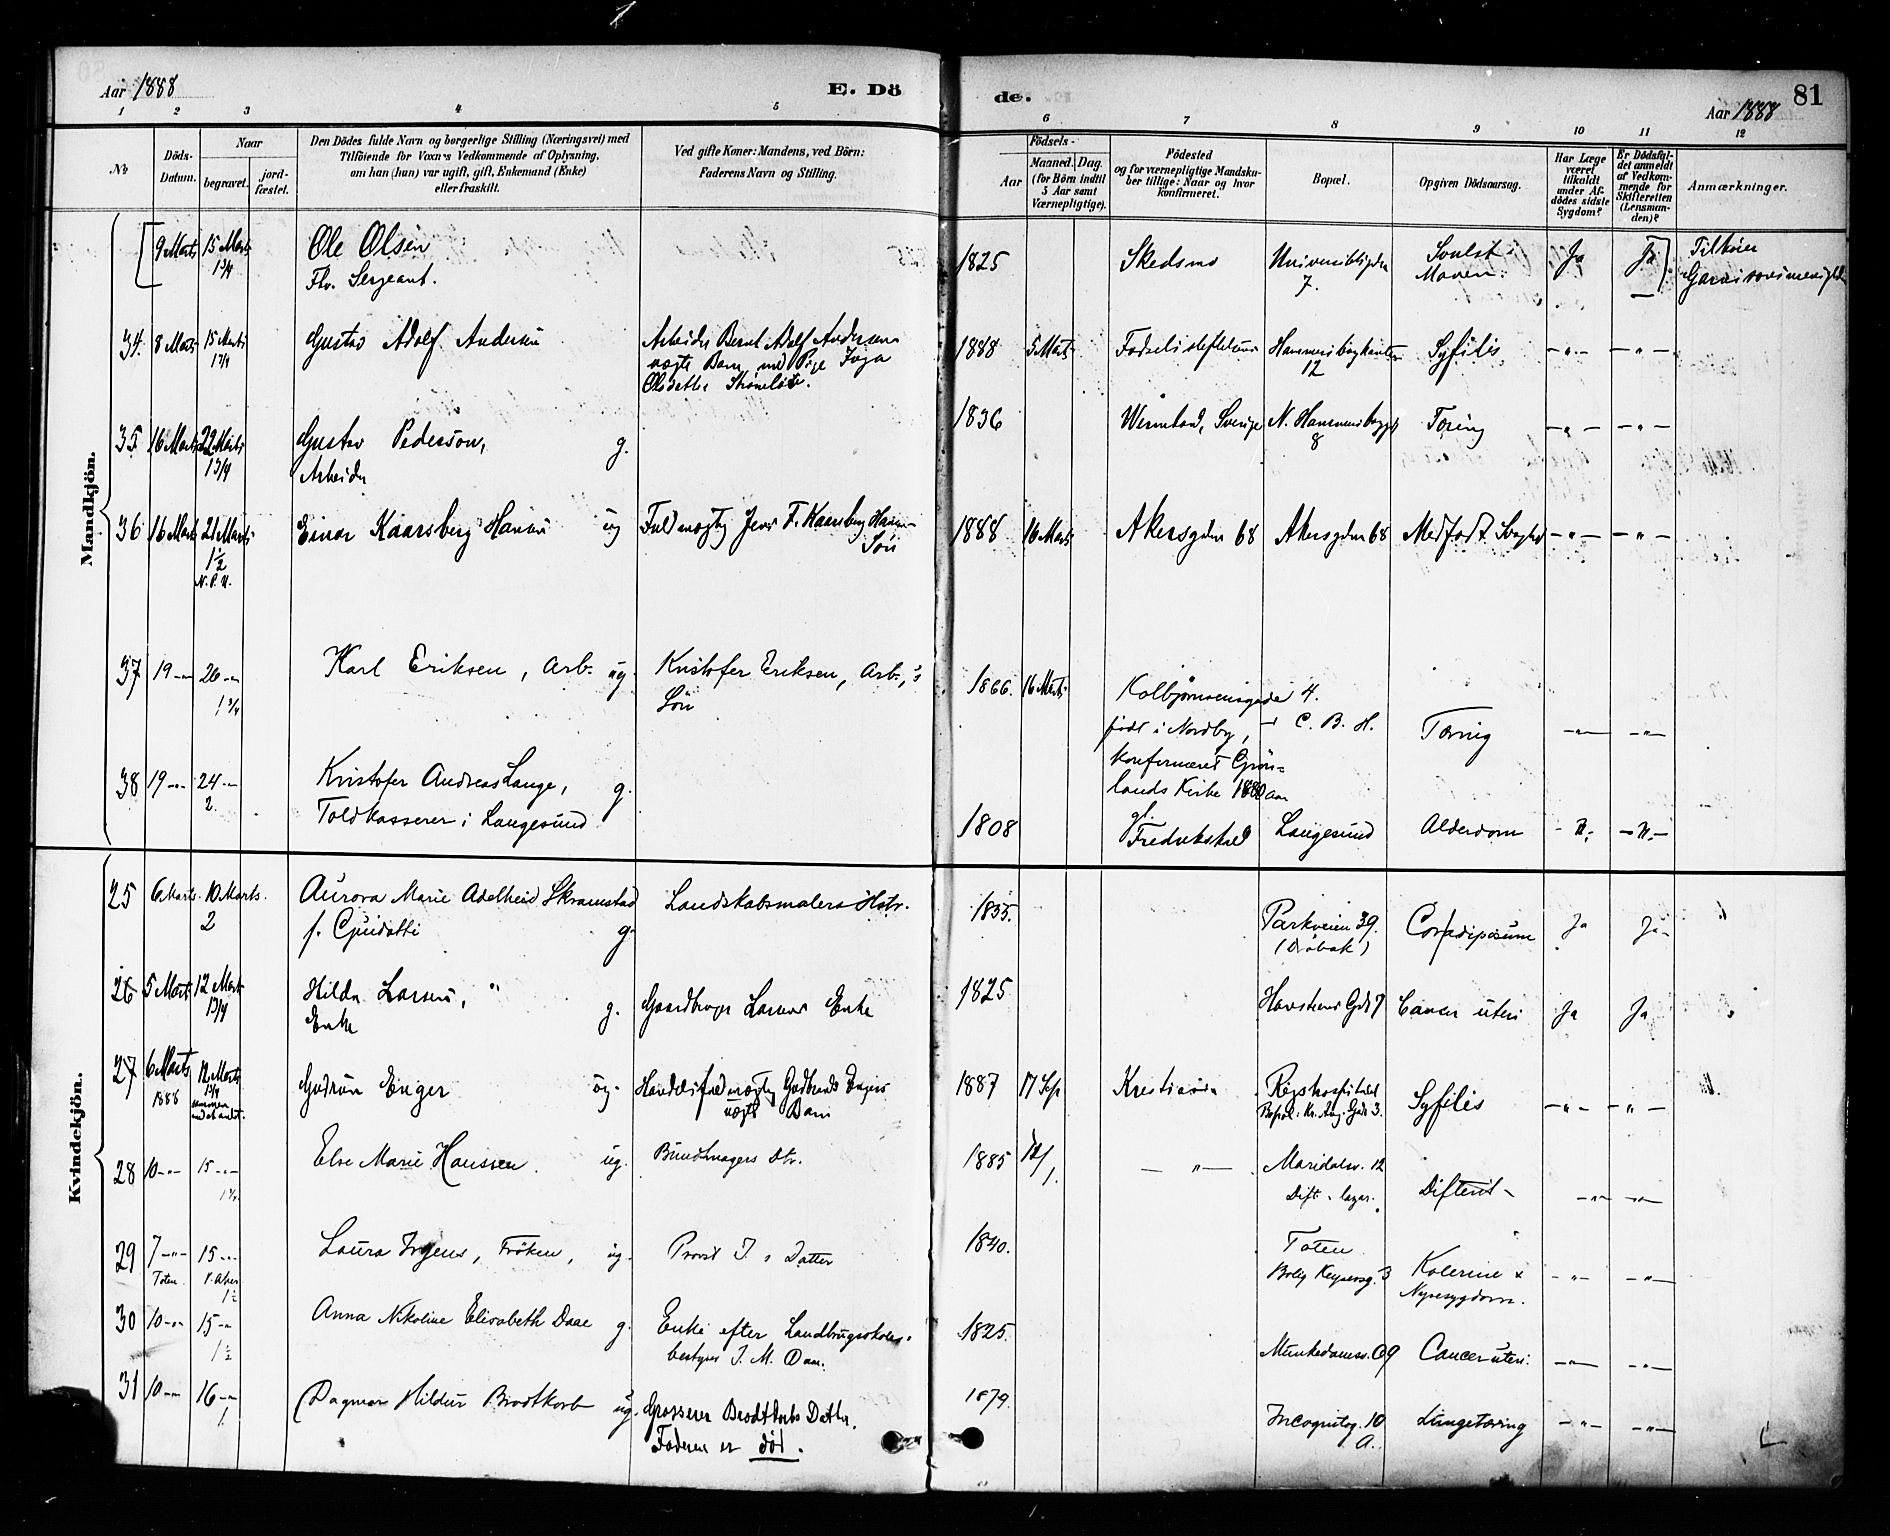 Aar 1888
E. Dö
de.
Aar 1888
81
1 2 3 4 5 6 7 8 9 10 11 12
No
Döds-Datum.
Naar
begravet.
jord-fæstet.
Den Dödes fulde Navn og borgerlige Stilling (Næringsvei) med
Tilföiende for Voxnes Vedkommende af Oplysning,
om han (hun) var ugift, gift, Enkemand (Enke)
eller fraskilt.
Ved gifte Koner: Mandens, ved Börn:
Faderens Navn og Stilling.
Födsels-
Aar
Maaned. Dag.
(for Börn indtil
5 Aar samt
Værnepligtige).
Födested
og for værnepligtige Mandska-
ber tillige: Naar og hvor
konfirmeret.
Bopæl.
Opgiven Dödsaarsag.
Har Læge
været
tilkaldt
under Af-
dödes sidste
Sygdom?
Er Dödsfal-
det anmeldt
af Vedkom-
mende for
Skifteretten
(Lensman-
den)?
Anmærkninger.
Mandkjön.
9 Marts 15 Marts Ole Olsen 1825 Skedsmo 7. Ja Ja Tilhører
1 3/4 Sergeant.
34. 8 Marts 15 Marts Gustav Adolf Andersen Arbeider Bernt Adolf Andersens 1888 5 Marts 12 Syfilis -"- -"-
1 3/4 uægte Barn med Pige Inga
35 16 Marts 22 Marts Gustav Pederson, g. 1836 Wermland, Sverige 8 Tæring -"- -"-
1 3/4 Arbeider
36 16 Marts 21 Marts Einar Kaarsberg Hansen ug Fuldmægtig Jens F. Kaarsberg Hansens Søn 1888 16 Marts Akersgden 68 Akersgden 68 Medfødt Svaghed -"- -"-
1 1/2
37 19 -"- 26 -"- Karl Eriksen, Arb. ug. Kristofer Eriksen, Arb., s 1866. 16 Marts Kolbjørnsensgade 4.
1 3/4 Søn født i Nordby, C. B. H. Tæring -"- -"-
konfirmeret Grøn-
lands Kirke
38 19 -"- 24 -"- Kristofer Andreas Lange, g.
2. Toldkasserer i Langesund 1808 Fredrikstad Langesund Alderdom -"- -"-
Kvindekjön.
25 6 Marts. 10 Marts. Aurora Marie Adelheid Skramstad Landskabsmalers Hstr. 1835. Parkveien 39. Cor adiposum Ja Ja
2 f. Guidotti g. (Drøbak)
26 5 Marts 12 Marts Hilda Larsen, g. Gaardbruger Larsens Enke 1825 7 Cancer uteri Ja Ja
1 3/4 Enke
27 6 Marts 12 Marts Gudrun Enger ug. Handelsfuldmægtig Gudbrand Engers 1887 17 Sep Kristiania Rigshospitalet Syfilis -"- -"-
1888 uægte Barn Bopæl: Kr. Aug. Gade 3.
28 10 -"- 15 -"- Else Marie Hanssen. ug. Buntmagers Dtr. 1885 -"- Maridalsv. 12 Difterit -"- -"-
Dift. lazar.
29 7 -"- 15 -"- Laura Irgens, Frøken, ug. Provst I. s Datter 1840. Toten Kolerine &
Toten. V. Aker 1 1/2 Bolig Keysersg. 3 Nyresygdom. -"- -"-
30 10 -"- 15 -"- Anna Nikoline Elisabeth Daae g. Enke efter Landbrugsskole- 1825. Cancer uteri. -"- -"-
1 1/2 bestyrer I. M. Daae.
31 10 -"- 16 -"- Dagmar Hildur Brodtkorb ug. Grosserer Brodtkorbs Datter. 1879. Incognitog. 10 Lungetæring -"- -"-
1 Faderen er død. A.